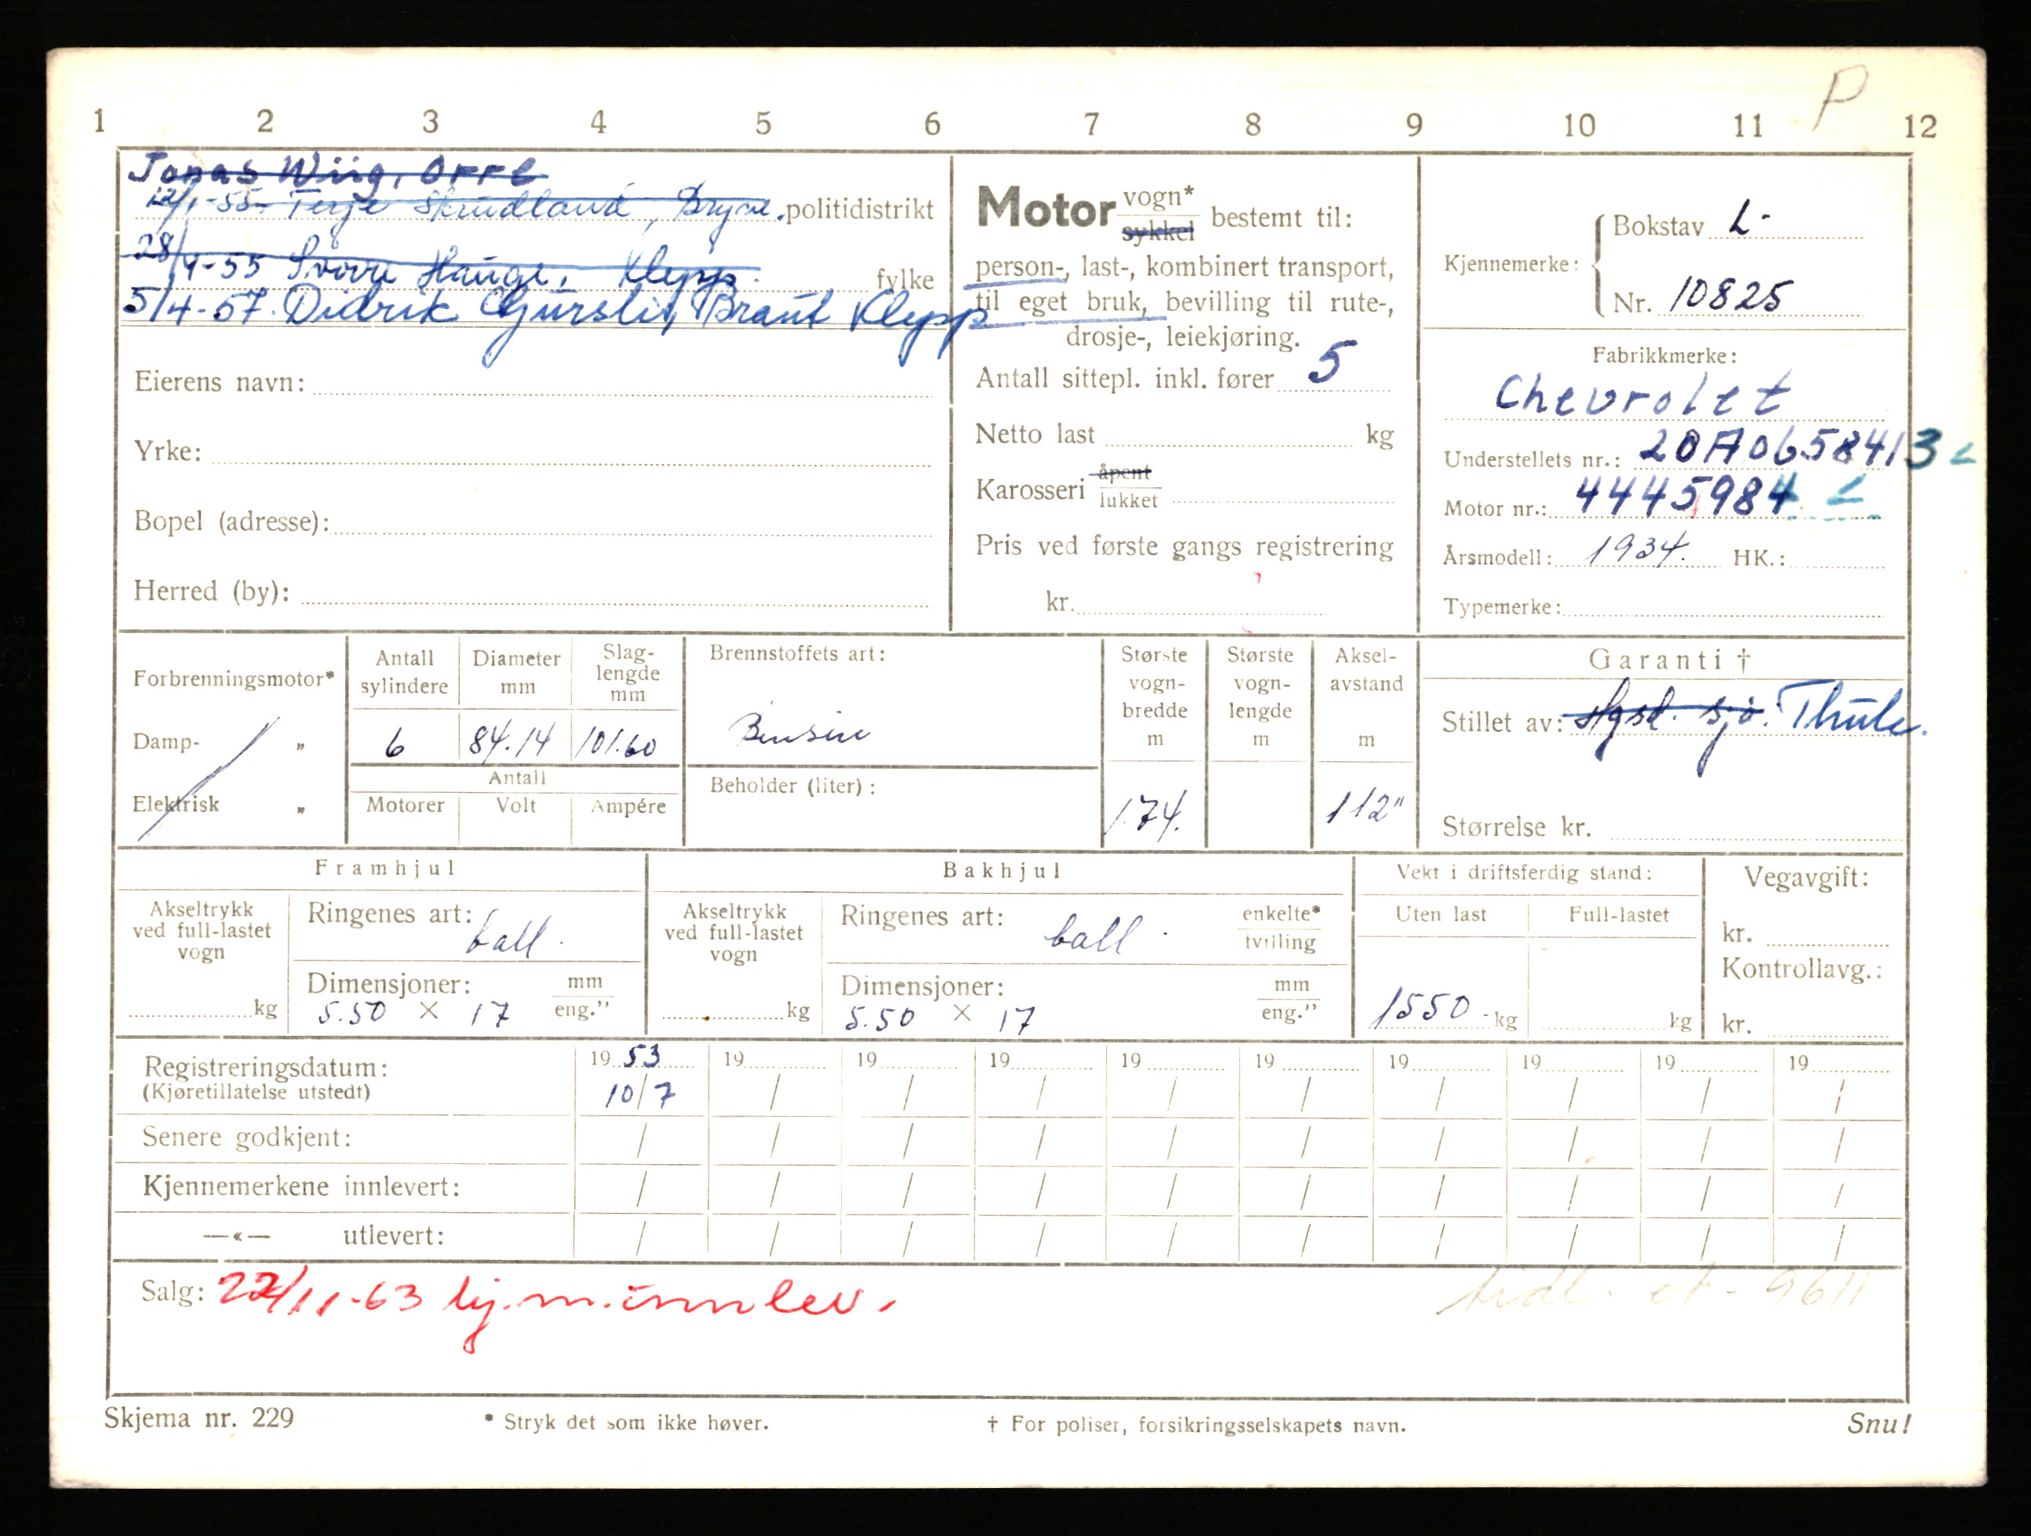 P
1 2 3 4 5 6 7 8 9 10 11 12
Jonas Wiig, Orre
12/1-55. Terje Skrudland, Bryne. politidistrikt
28/4-55 Svovre Hauge, Klepp. fylke
5/4-57. Didrik Gjurslit, Braut Klepp
Eierens navn:
Yrke:
Bopel (adresse):
Herred (by):
Motor vogn* sykkel bestemt til:
person-, last-, kombinert transport,
til eget bruk, bevilling til rute-,
drosje-, leiekjøring.
Antall sittepl. inkl. fører 5
Netto last kg
Karosseri åpent lukket
Pris ved første gangs registrering
kr.
Kjennemerke: Bokstav L-
Nr. 10825
Fabrikkmerke:
Chevrolet
Understellets nr.: 20A0658413 L
Motor nr.: 4445984 L
Årsmodell: 1934. HK.:
Typemerke:
Forbrenningsmotor*
Damp- „
Elektrisk „
Antall sylindere
6
Diameter mm
84.14
Slaglengde mm
101.60
Antall
Motorer Volt Ampére
Brennstoffets art:
Bensin
Beholder (liter):
Største vogn-bredde m
1.74.
Største vogn-lengde m
Aksel-avstand m
112"
Garanti †
Stillet av: Agst. sjø. Thule.
Størrelse kr.
Framhjul
Akseltrykk ved full-lastet vogn
kg
Ringenes art: ball.
Dimensjoner: mm
5.50 × 17 eng."
Bakhjul
Akseltrykk ved full-lastet vogn
kg
Ringenes art: ball. enkelte* tvilling
Dimensjoner: mm
5.50 × 17 eng."
Vekt i driftsferdig stand:
Uten last Full-lastet
1550 kg kg
Vegavgift:
kr.
Kontrollavg.:
kr.
Registreringsdatum: 19 53 19 19 19 19 19 19 19 19 19
(Kjøretillatelse utstedt) 10/7 / / / / / / / / /
Senere godkjent: / / / / / / / / / /
Kjennemerkene innlevert: / / / / / / / / / /
—«— utlevert: / / / / / / / / / /
Salg: 22/11-63 kj.m.innlev.
tidl. et - 9611
Skjema nr. 229 * Stryk det som ikke høver. † For poliser, forsikringsselskapets navn. Snu!